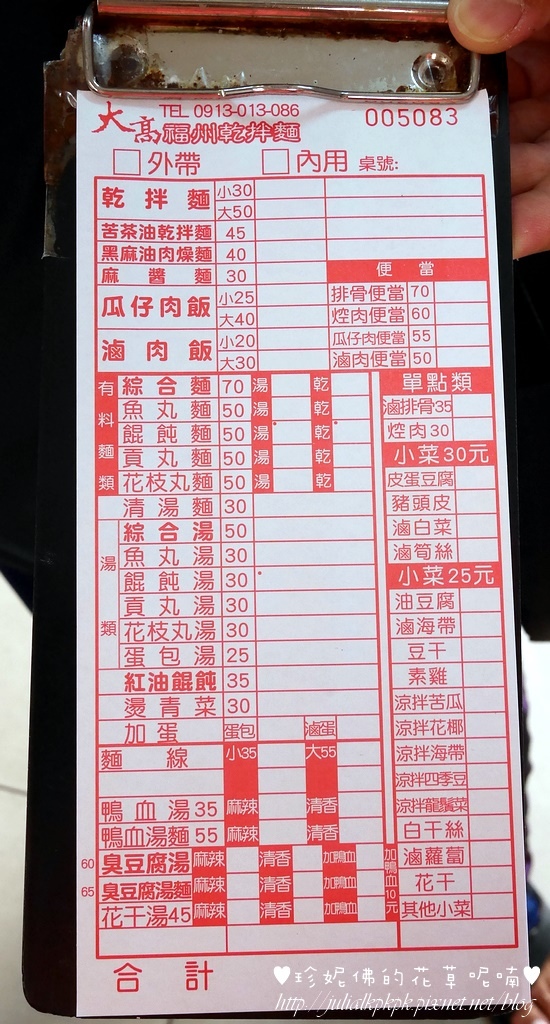 大高 TEL 0913-013-086 005083
福州乾拌麵
外帶 內用 桌號:
乾拌麵 小30
大50
苦茶油乾拌麵 45
黑麻油肉燥麵 40
麻醬麵 30 便當
瓜仔肉飯 小25 排骨便當 70
大40 焢肉便當 60
滷肉飯 小20 瓜仔肉便當 55
大30 滷肉便當 50
有料麵類
綜合麵 70 湯 乾 單點類
魚丸麵 50 湯 乾 滷排骨35
餛飩麵 50 湯 乾 焢肉30
貢丸麵 50 湯 乾 小菜30元
花枝丸麵 50 湯 乾 皮蛋豆腐
清湯麵 30 豬頭皮
湯類
綜合湯 50 滷白菜
魚丸湯 30 滷筍絲
餛飩湯 30 小菜25元
貢丸湯 30 油豆腐
花枝丸湯 30 滷海帶
蛋包湯 25 豆干
紅油餛飩 35 素雞
燙青菜 30 涼拌苦瓜
加蛋 蛋包 滷蛋 涼拌花椰
麵線 小35 大55 涼拌海帶
涼拌四季豆
鴨血湯35 麻辣 清香 涼拌龍鬚菜
鴨血湯麵55 麻辣 清香 白干絲
60 臭豆腐湯 麻辣 清香 加鴨血 滷蘿蔔
65 臭豆腐湯麵 麻辣 清香 加鴨血 花干
花干湯45 麻辣 清香 加鴨血 其他小菜
加鴨血10元
合計
♥珍妮佛的花草呢喃♥
http://julialkpkpk.pixnet.net/blog